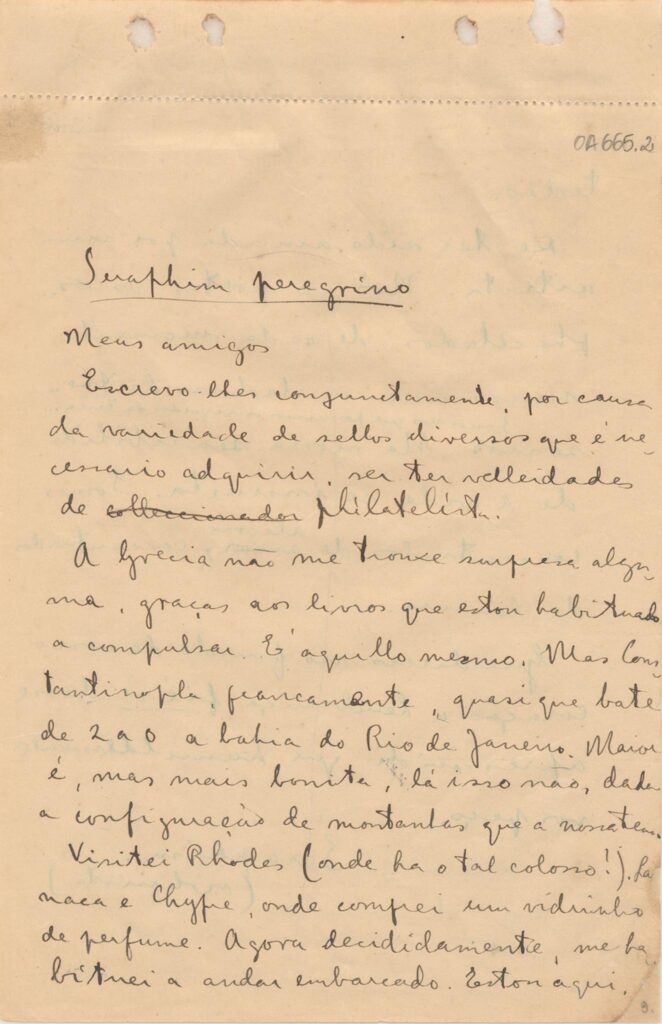 OA665.2
Seraphim peregrino
Meus amigos
Escrevo-lhes conjunctamente, por causa
da variedade de sellos diversos que é ne-
cessario adquirir, ser ter velleidades
de colleccionador philatelista.
A Grecia não me trouxe surpresa algu-
ma, graças aos livros que estou habituado
a compulsar. E' aquillo mesmo. Mas Cons-
tantinopla, francamente, quasi que bate
de 2 a 0 a bahia do Rio de Janeiro. Maior
é, mas mais bonita, lá isso não, dada
a configuração de montanhas que a nossa tem.
Visitei Rhodes (onde ha o tal colosso!). La
naca e Chypre, onde comprei um vidrinho
de perfume. Agora decididamente, me ha-
bituei a andar embarcado. Estou aqui,